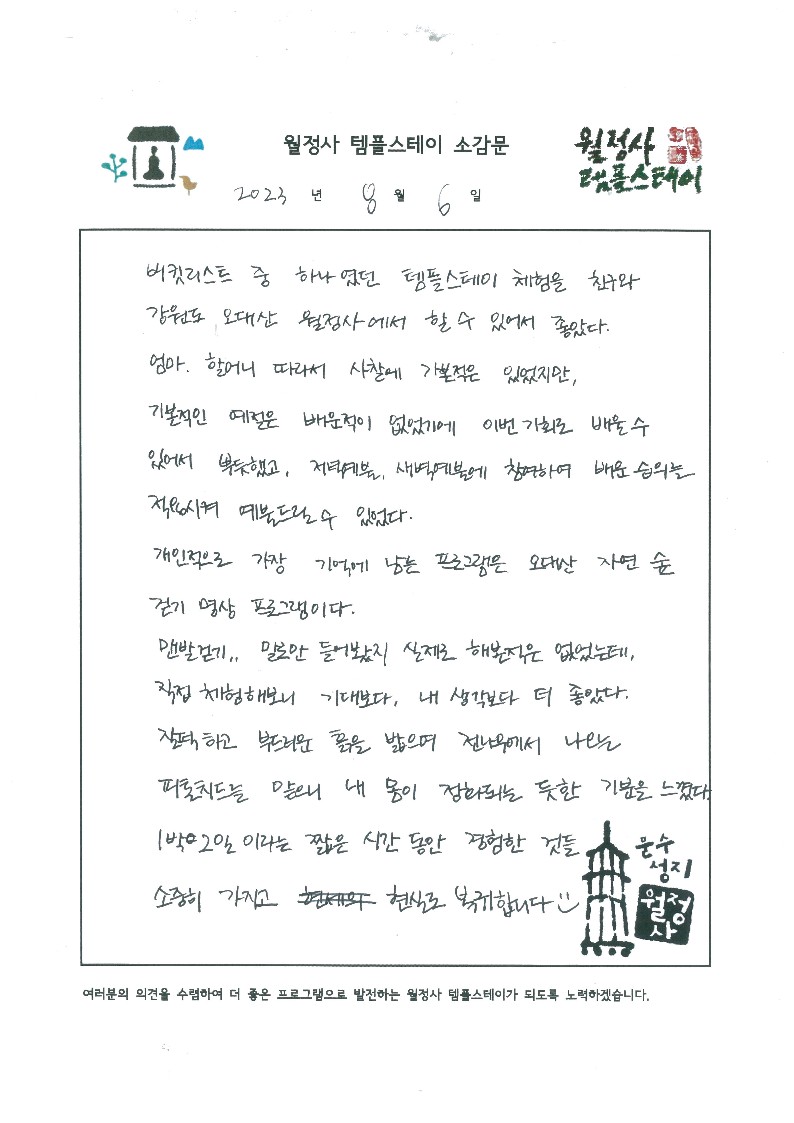 월정사 템플스테이 소감문
월정사
템플스테이
2023 년 8 월 6 일
버킷리스트 중 하나였던 템플스테이 체험을 친구와
강원도 오대산 월정사에서 할 수 있어서 좋았다.
엄마. 할머니 따라서 사찰에 가본적은 있었지만,
기본적인 예절은 배운적이 없었기에 이번 기회로 배울 수
있어서 뿌듯했고, 저녁예불, 새벽예불에 참여하여 배운 습의를
적용시켜 예불드릴 수 있었다.
개인적으로 가장 기억에 남는 프로그램은 오대산 자연 숲
걷기 명상 프로그램이다.
맨발걷기,, 말로만 들어봤지 실제로 해본적은 없었는데,
직접 체험해보니 기대보다, 내 생각보다 더 좋았다.
질퍽하고 부드러운 흙을 밟으며 전나무에서 나오는
피톤치드를 맡으니 내 몸이 정화되는 듯한 기분을 느꼈다.
1박 2일 이라는 짧은 시간 동안 경험한 것들
소중히 가지고 현실로 복귀합니다
문수
성지
월정
사
여러분의 의견을 수렴하여 더 좋은 프로그램으로 발전하는 월정사 템플스테이가 되도록 노력하겠습니다.